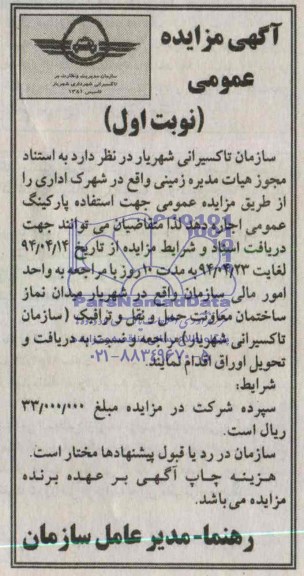 آگهی مزایده
عمومی
(نوبت اول)
سازمان مدیریت و نظارت بر
تاکسیرانی شهرداری شهریار
تاسیس ۱۳۸۱
سازمان تاکسیرانی شهریار در نظر دارد به استناد
مجوز هیات مدیره زمینی واقع در شهرک اداری را
از طریق مزایده عمومی جهت استفاده پارکینگ
عمومی اجاره دهد لذا متقاضیان می توانند جهت
دریافت اسناد و شرایط مزایده از تاریخ ۹۴/۰۴/۱۴
لغایت ۹۴/۰۴/۲۳ به مدت ۱۰ روز با مراجعه به واحد
امور مالی سازمان واقع در شهریار میدان نماز
ساختمان معاونت حمل و نقل و ترافیک (سازمان
تاکسیرانی شهریار) مراجعه و نسبت به دریافت و
تحویل اوراق اقدام نمایند.
شرایط:
سپرده شرکت در مزایده مبلغ ۳۳/۰۰۰/۰۰۰
ریال است.
سازمان در رد یا قبول پیشنهادها مختار است.
هزینه چاپ آگهی بر عهده برنده
مزایده می باشد.
رهنما - مدیر عامل سازمان
ParsNamadData